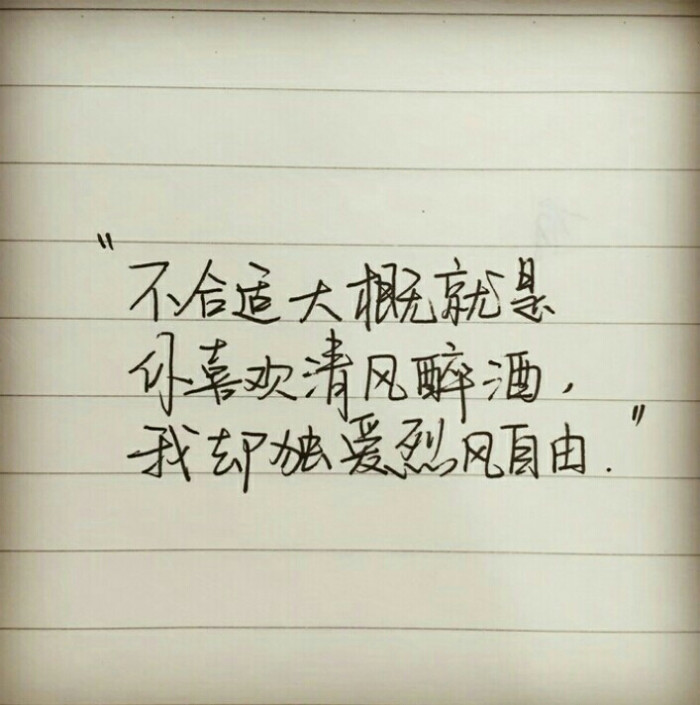 "不合适大概就是
你喜欢清风醉酒,
我却独爱烈风自由."